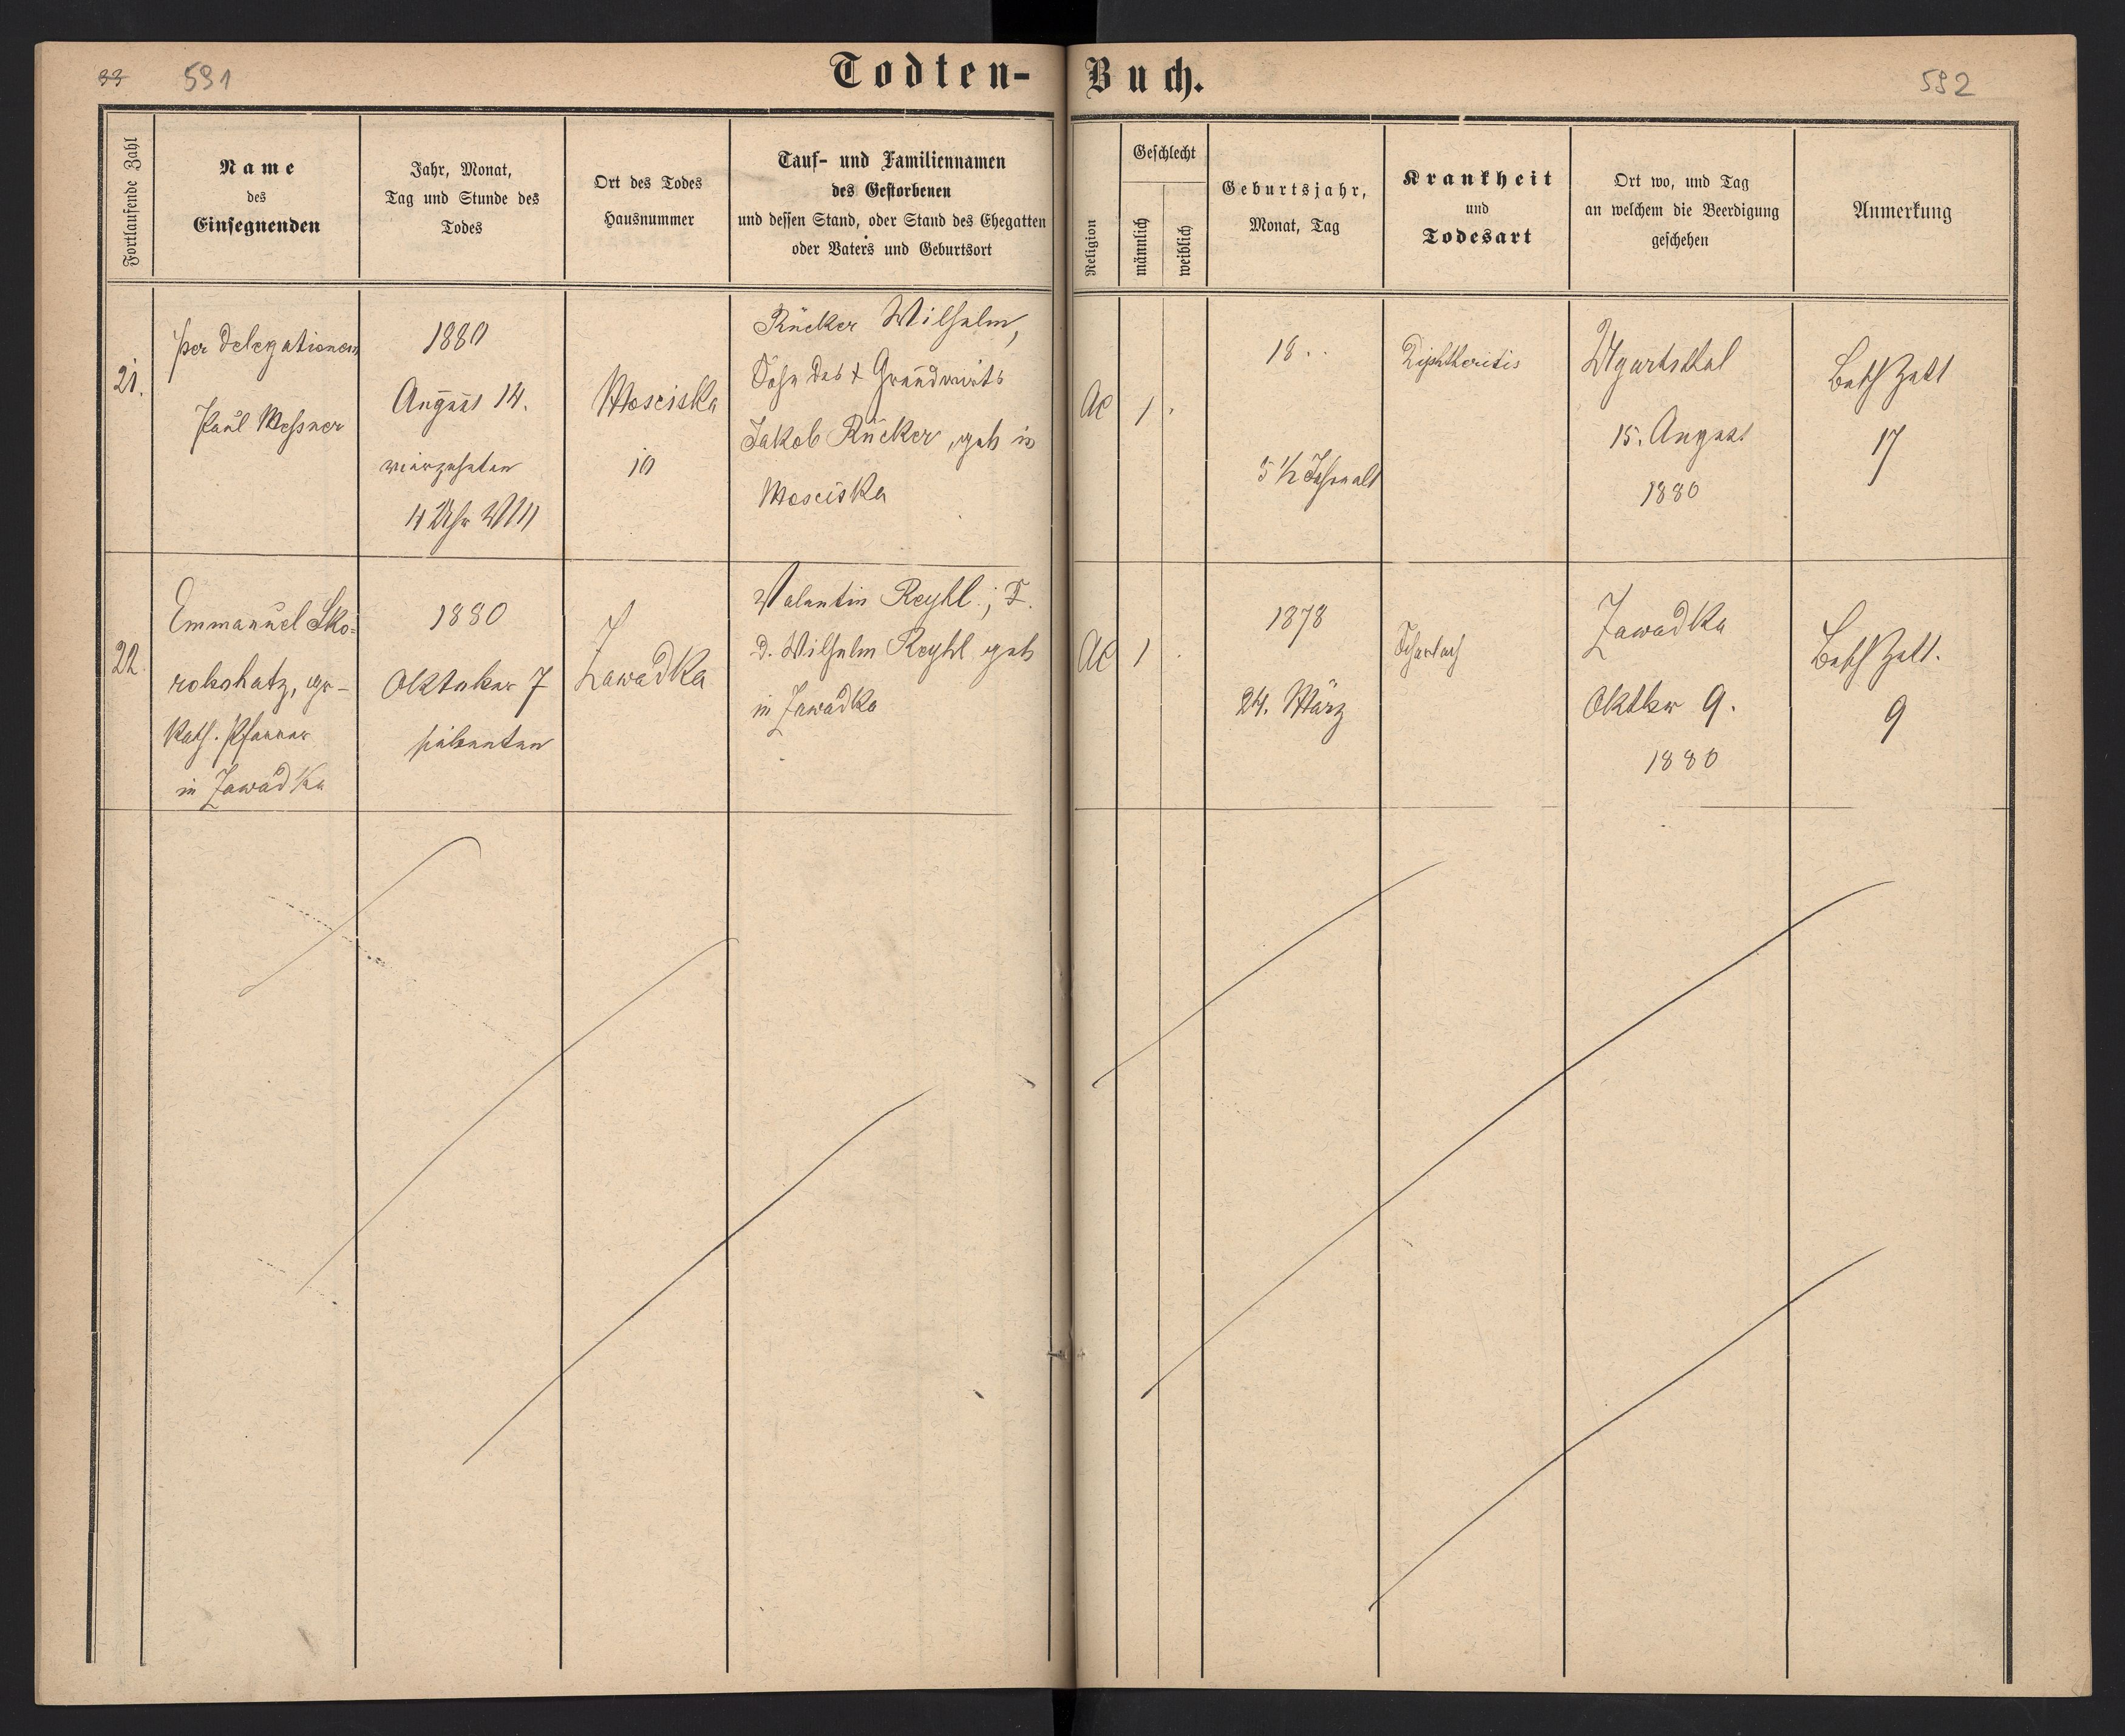 33 591
Todten-Buch.
592
Fortlaufende Zahl
Name
des
Einsegnenden
Jahr, Monat,
Tag und Stunde des
Todes
Ort des Todes
Hausnummer
Tauf- und Familiennamen
des Gestorbenen
und dessen Stand, oder Stand des Ehegatten
oder Vaters und Geburtsort
Religion
Geschlecht
männlich
weiblich
Geburtsjahr,
Monat, Tag
Krankheit
und
Todesart
Ort wo, und Tag
an welchem die Beerdigung
geschehen
Anmerkung
21.
per delegationem
Paul Messner
1880
August 14.
vierzehnten
4 Uhr
Mosciska
10
Rücker Wilhelm,
Sohn des † Grundwirts
Jakob Rücker, geb in
Mosciska
AC
1 .
18 . .
5 1/2 Jahre alt
Diphtheritis
Ugartsthal
15. August
1880
17
22.
Emmanuel Sko-
robohatz, gr-
kath. Pfarrer
in Zawadka
1880
Oktober 7
siebenten
Zawadka
Valentin Reykl; S.
d. Wilhelm Reykl geb
in Zawadka
AC
1 .
1878
24. März
Scharlach
Zawadka
Oktber 9.
1880
9